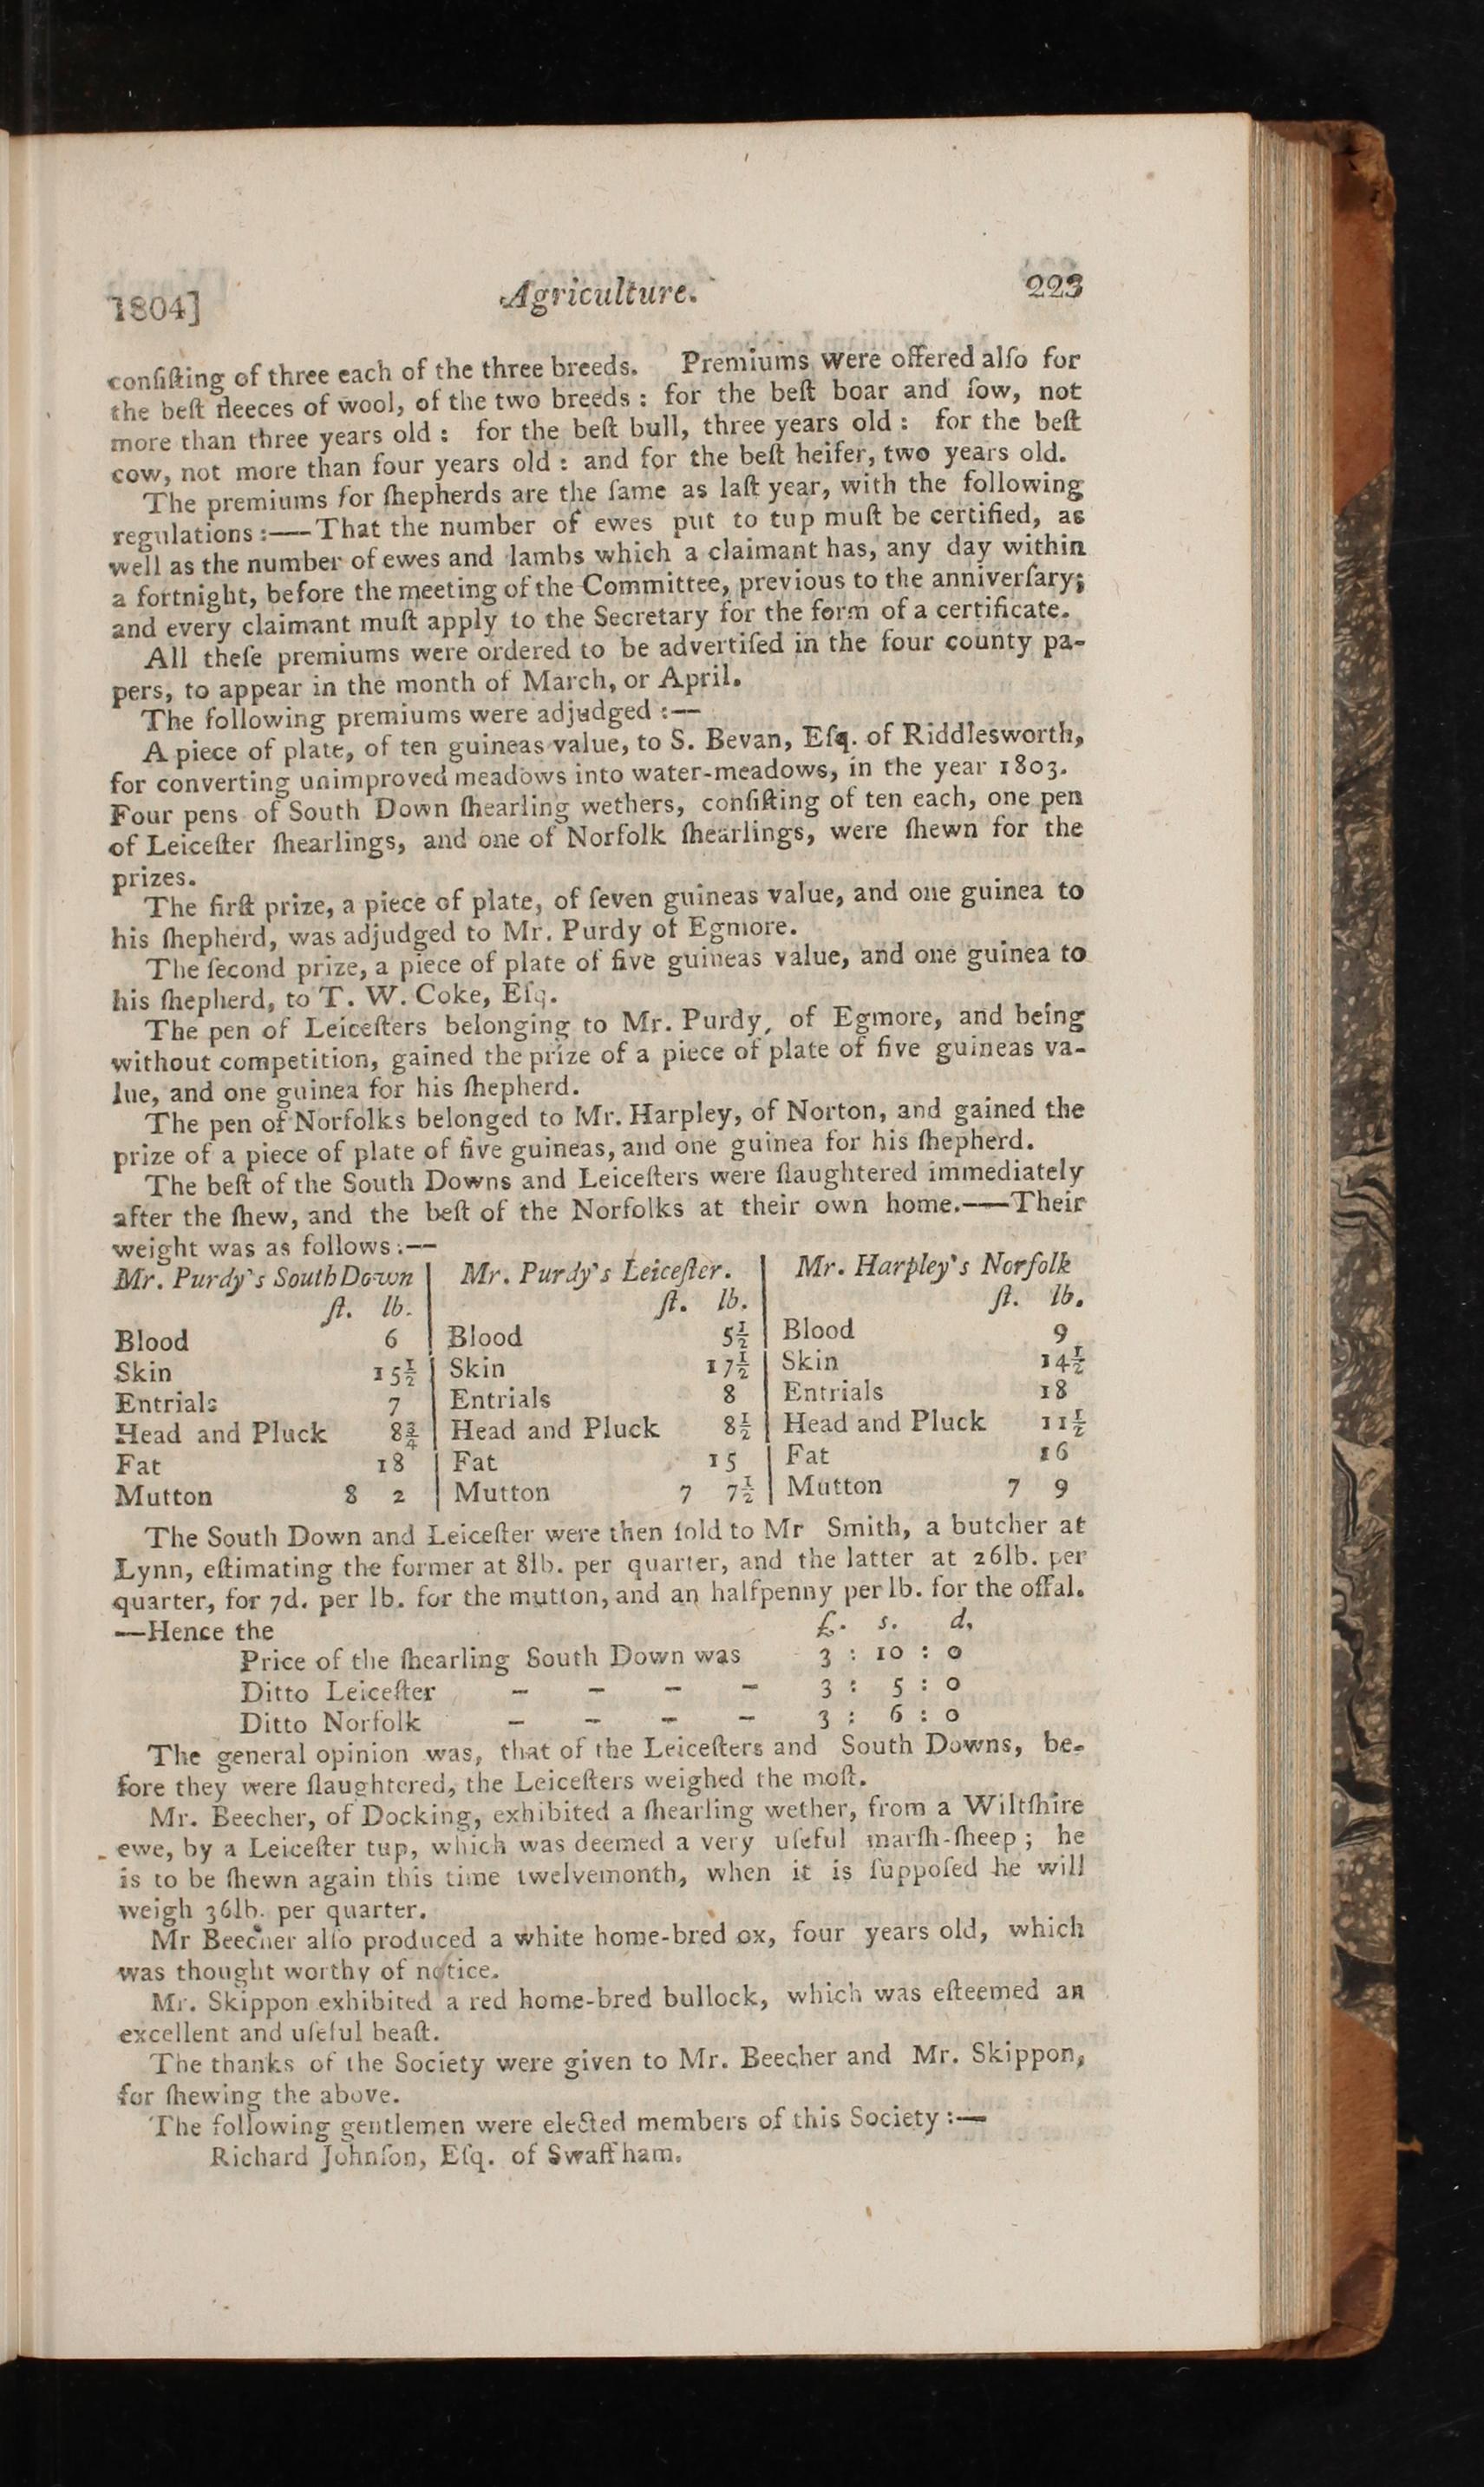 1804] Agriculture. 223
conſiſting of three each of the three breeds. Premiums were offered alſo for
the beſt fleeces of wool, of the two breeds : for the beſt boar and ſow, not
more than three years old : for the beſt bull, three years old : for the beſt
cow, not more than four years old : and for the beſt heifer, two years old.
The premiums for ſhepherds are the ſame as laſt year, with the following
regulations :—— That the number of ewes put to tup muſt be certified, as
well as the number of ewes and lambs which a claimant has, any day within
a fortnight, before the meeting of the Committee, previous to the anniverſary;
and every claimant muſt apply to the Secretary for the form of a certificate.
All theſe premiums were ordered to be advertiſed in the four county pa-
pers, to appear in the month of March, or April.
The following premiums were adjudged :——
A piece of plate, of ten guineas value, to S. Bevan, Eſq. of Riddlesworth,
for converting unimproved meadows into water-meadows, in the year 1803.
Four pens of South Down ſhearling wethers, conſiſting of ten each, one pen
of Leiceſter ſhearlings, and one of Norfolk ſhearlings, were ſhewn for the
prizes.
The firſt prize, a piece of plate, of ſeven guineas value, and one guinea to
his ſhepherd, was adjudged to Mr. Purdy of Egmore.
The ſecond prize, a piece of plate of five guineas value, and one guinea to
his ſhepherd, to T. W. Coke, Eſq.
The pen of Leiceſters belonging to Mr. Purdy, of Egmore, and being
without competition, gained the prize of a piece of plate of five guineas va-
lue, and one guinea for his ſhepherd.
The pen of Norfolks belonged to Mr. Harpley, of Norton, and gained the
prize of a piece of plate of five guineas, and one guinea for his ſhepherd.
The beſt of the South Downs and Leiceſters were ſlaughtered immediately
after the ſhew, and the beſt of the Norfolks at their own home.——Their
weight was as follows :——
Mr. Purdy's South Down | Mr. Purdy's Leiceſter. | Mr. Harpley's Norfolk
ſt. lb. | ſt. lb. | ſt. lb.
Blood 6 | Blood 5½ | Blood 9
Skin 15½ | Skin 17½ | Skin 14½
Entrials 7 | Entrials 8 | Entrials 18
Head and Pluck 8¾ | Head and Pluck 8½ | Head and Pluck 11½
Fat 18 | Fat 15 | Fat 16
Mutton 8 2 | Mutton 7 7½ | Mutton 7 9
The South Down and Leiceſter were then ſold to Mr Smith, a butcher at
Lynn, eſtimating the former at 8lb. per quarter, and the latter at 26lb. per
quarter, for 7d. per lb. for the mutton, and an halfpenny per lb. for the offal.
—Hence the £. s. d.
Price of the ſhearling South Down was 3 : 10 : 0
Ditto Leiceſter - - - - 3 : 5 : 0
Ditto Norfolk - - - - 3 : 6 : 0
The general opinion was, that of the Leiceſters and South Downs, be-
fore they were ſlaughtered, the Leiceſters weighed the moſt.
Mr. Beecher, of Docking, exhibited a ſhearling wether, from a Wiltſhire
ewe, by a Leiceſter tup, which was deemed a very uſeful marſh-ſheep ; he
is to be ſhewn again this time twelvemonth, when it is ſuppoſed he will
weigh 36lb. per quarter.
Mr Beecher alſo produced a white home-bred ox, four years old, which
was thought worthy of notice.
Mr. Skippon exhibited a red home-bred bullock, which was eſteemed an
excellent and uſeful beaſt.
The thanks of the Society were given to Mr. Beecher and Mr. Skippon,
for ſhewing the above.
The following gentlemen were elected members of this Society :—
Richard Johnſon, Eſq. of Swaffham.